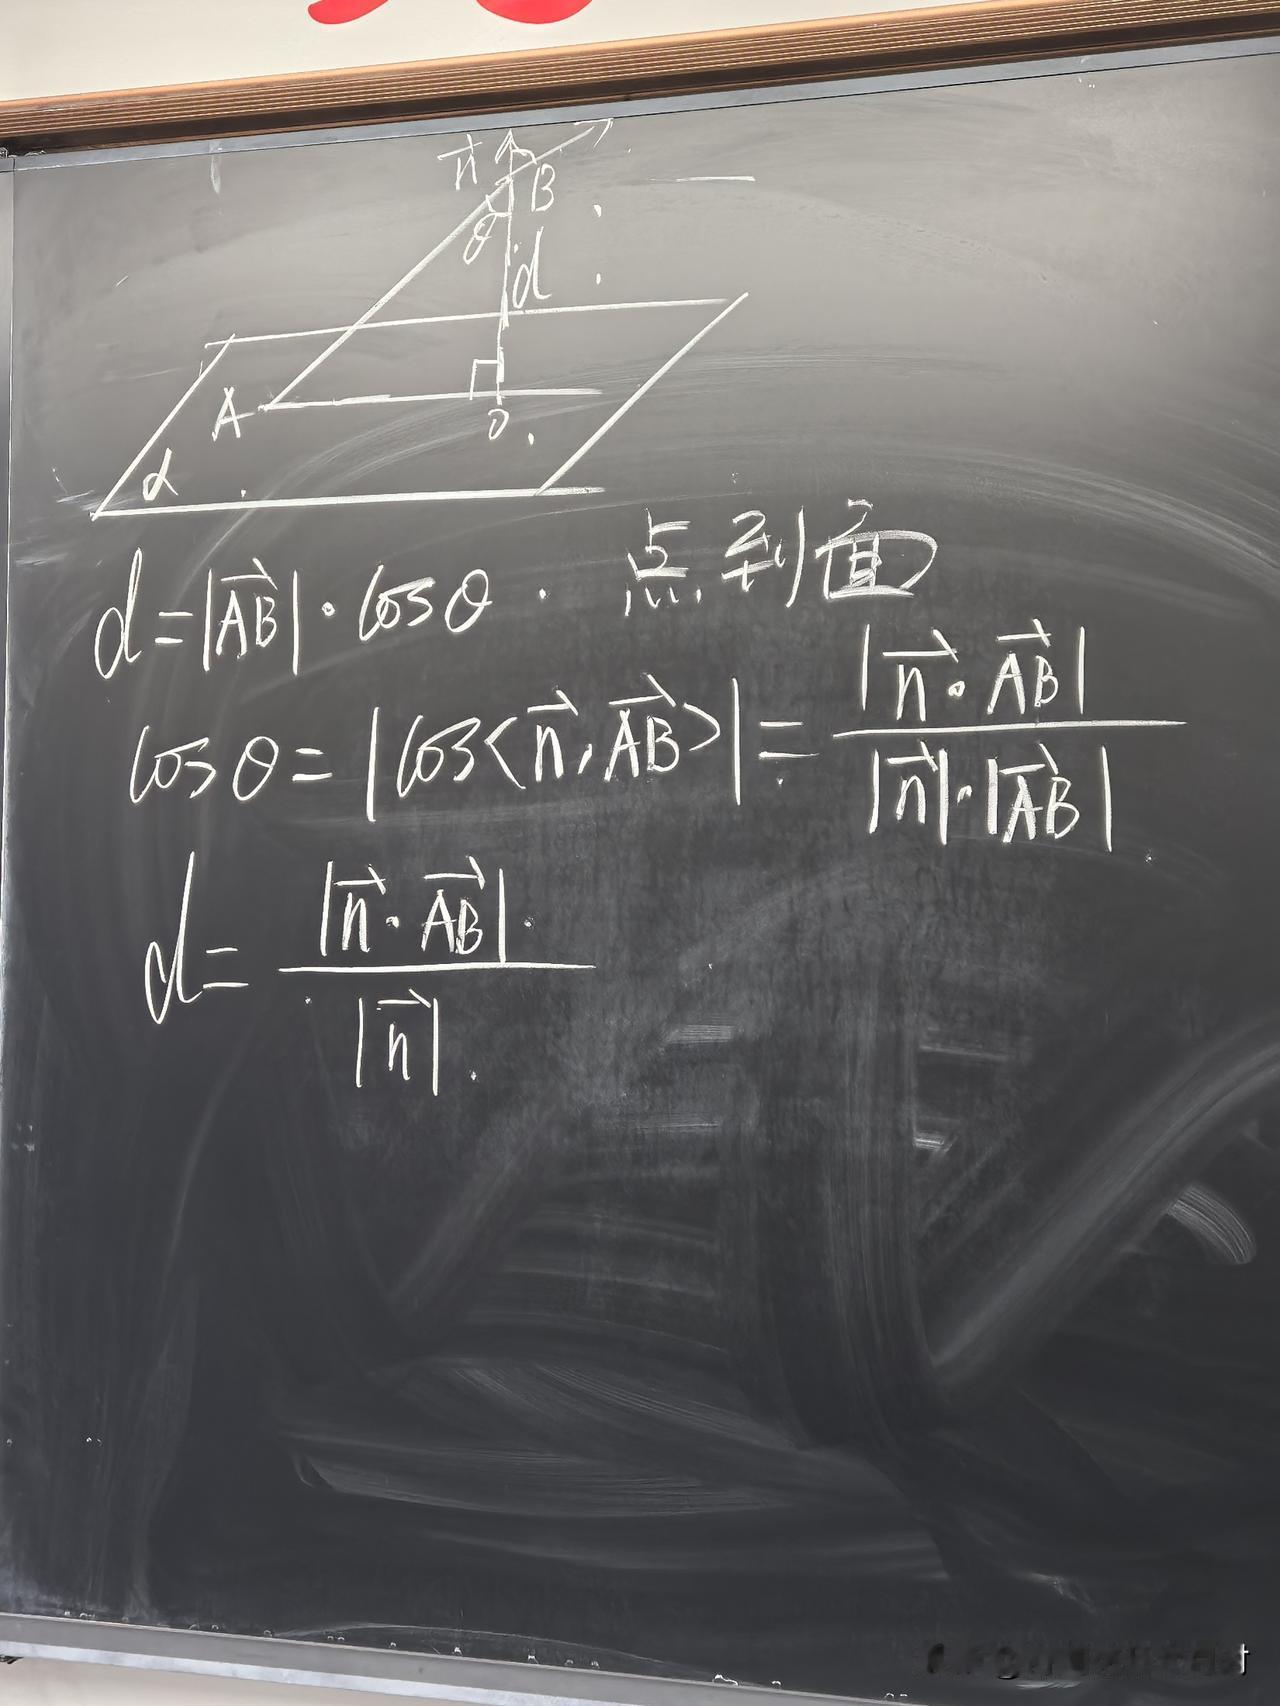 n⃗ B
θ
d
A
O
α
d=|AB⃗|·cosθ. 点到面
cosθ=|cos<n⃗,AB⃗>|=|n⃗·AB⃗|/|n⃗|·|AB⃗|
d=|n⃗·AB⃗|/|n⃗|.